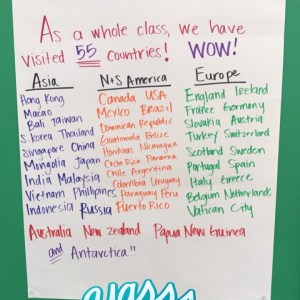 As a whole class, we have
visited 55 countries! WOW!
Asia
Hong Kong
Macao
Bali Taiwan
S.Korea Thailand
Singapore China
Mongolia Japan
India Malaysia
Vietnam Phillipines
Indonesia Russia
N+S America
Canada USA
Mexico Brazil
Dominican Republic
Guatemala Belize
Honduras Nicaragua
Costa Rica Panama
Chile Argentina
Colombia Uruguay
Paraguay Peru
Puerto Rico
Europe
England Ireland
France Germany
Slovakia Austria
Turkey Switzerland
Scotland Sweden
Portugal Spain
Italy Greece
Belgium Netherlands
Vatican City
Australia New Zealand Papua New Guinea
and Antarctica"
glass